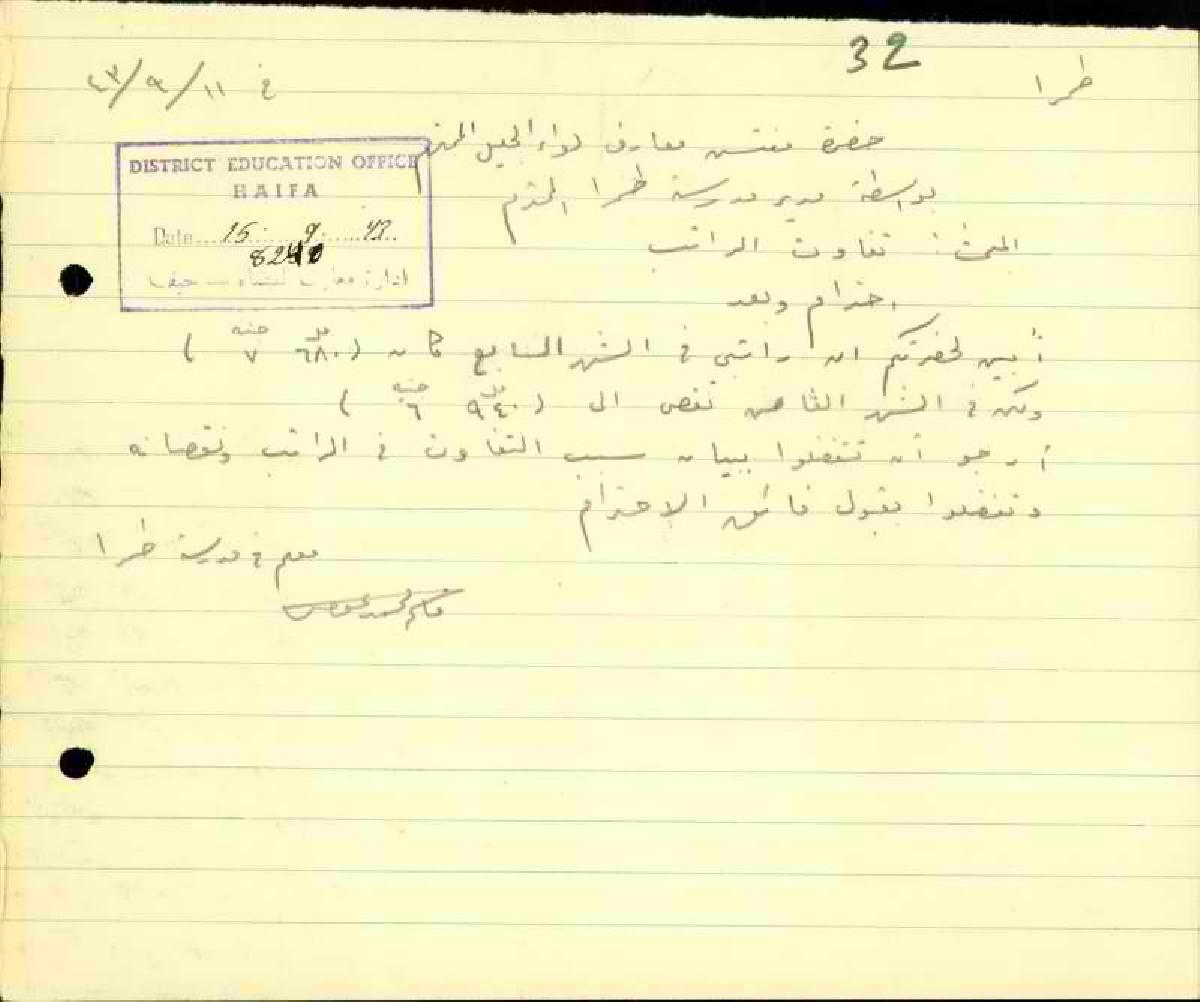 32
طمرا
في ١١/٩/٤٣
حضرة مفتش معارف لواء الجليل المحترم
بواسطة مدير مدرسة طمرا المحترم
DISTRICT EDUCATION OFFICE
HAIFA
Date 15 9 43
إدارة معارف حيفا
المبحث: تفاوت الراتب
احترام وبعد
أبين لحضرتكم ان راتبي في الشهر السابع كان (٦٨٠ مل ٧ جنيه)
ولكن في الشهر الثامن نقص الى (٩٤٠ مل ٦ جنيه)
أرجو أن تتفضلوا ببيان سبب التفاوت في الراتب ونقصانه
وتفضلوا بقبول فائق الاحترام
معلم في مدرسة طمرا